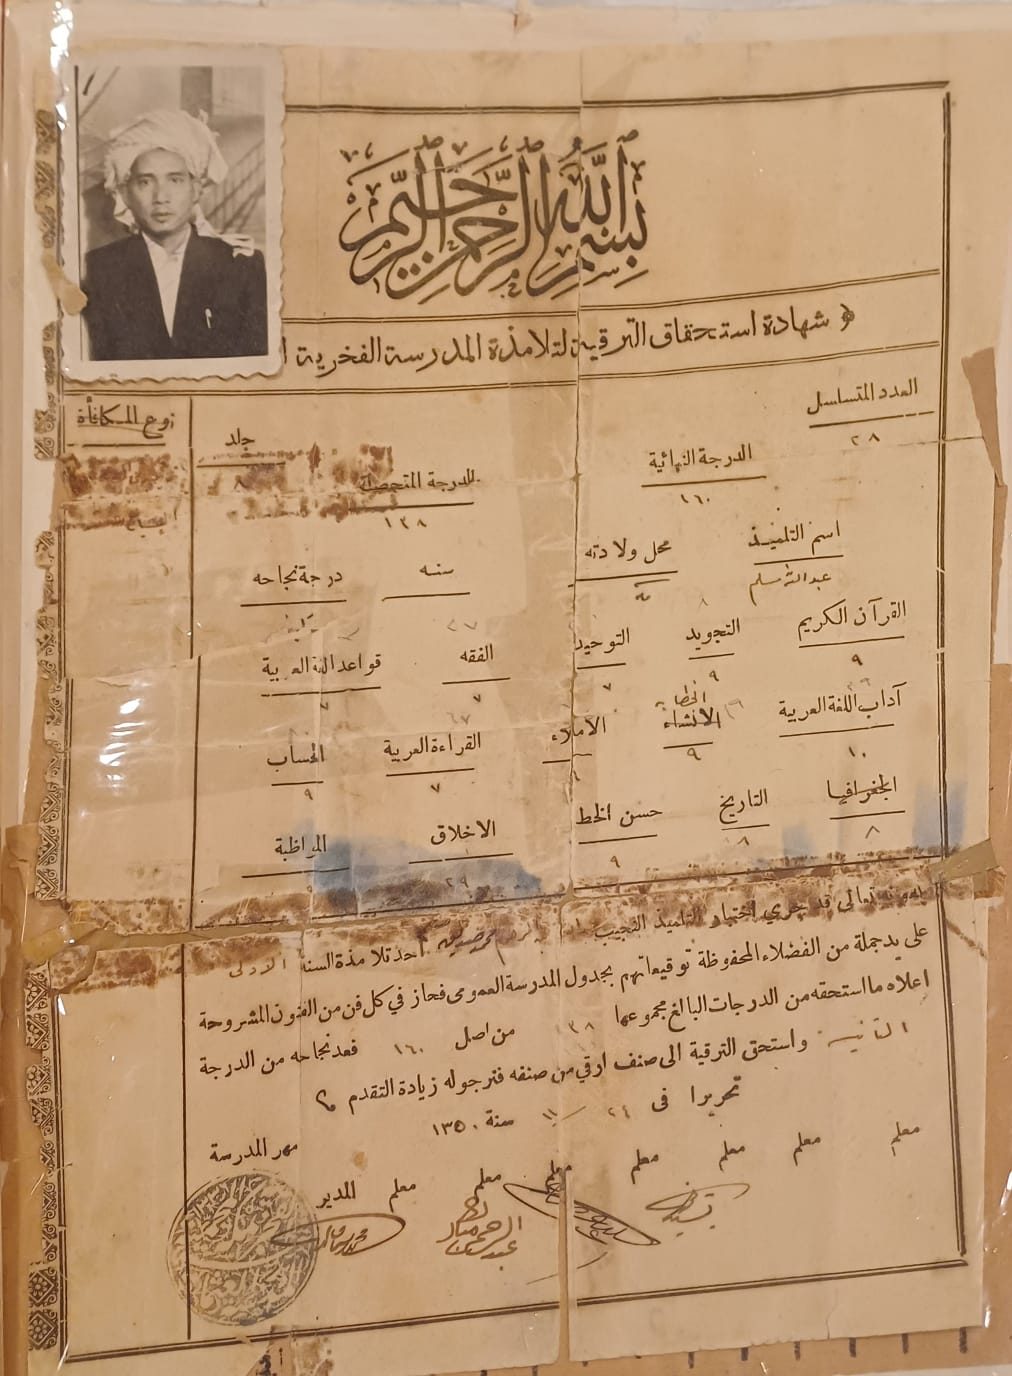 بسم الله الرحمن الرحيم
شهادة استحقاق الترقية لتلامذة المدرسة الفخرية
العدد المتسلسل
٢٨
الدرجة النهائية
١٦٠
للدرجة المتحصلة
١٣٨
جلد
٨
نوع المكافأة
اسم التلميذ
محل ولادته
سنه
درجة نجاحه
القرآن الكريم
٩
التجويد
٩
التوحيد
٧
الفقه
٧
قواعد اللغة العربية
٧
آداب اللغة العربية
١٠
الخطابة
الانشاء
٩
الاملاء
القراءة العربية
٧
الحساب
٩
الجغرافيا
٨
التاريخ
٨
حسن الخط
٩
الاخلاق
المواظبة
تعالى قد جرى اختبار التلميذ النجيب احد تلامذة السنة الاولى
على يد جملة من الفضلاء المحفوظة توقيعاتهم بجدول المدرسة العمومى فحاز في كل فن من الفنون المشروحة
اعلاه ما استحقه من الدرجات البالغ مجموعها ١٣٨ من اصل ١٦٠ فعد نجاحه من الدرجة
الثانية واستحق الترقية الى صنف ارقي من صنفه فنرجو له زيادة التقدم
تحريرا فى ٢٤ / ١١ سنة ١٣٥٠
معلم معلم معلم معلم معلم معلم معلم المدير مهر المدرسة